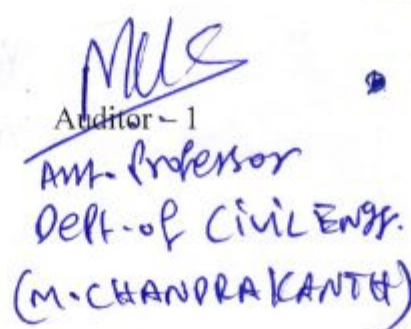 Auditor – 1
Asst. Professor
Dept. of Civil Engg.
(M. CHANDRA KANTH)